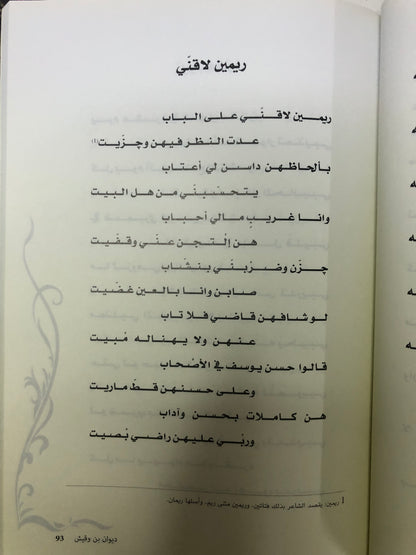 ريمين لاقنّي
ريمين لاقنّي على الباب
عدت النظر فيهن وجزّيت(1)
بألحاظهن داسن لي أعتاب
يتحسّبنّي من هل البيت
وانا غريبٍ مالي أحباب
هن إلتجن عنّي وقفّيت
جزّن وضربنّي بنشّاب
صابن وانا بالعين غضّيت
لو شافهن قاضي فلا تاب
عنهن ولا يهناله مْبيت
قالوا حسن يوسف في الأصْحاب
وعلى حسنهن قط ماريت
هن كاملات بحسن وآداب
وربّي عليهن راضي بْصيت
1 ريمين: يقصد الشاعر بذلك فتاتين، وريمين مثنى ريم، وأصلها ريمان.
ديوان بن وقيش 93